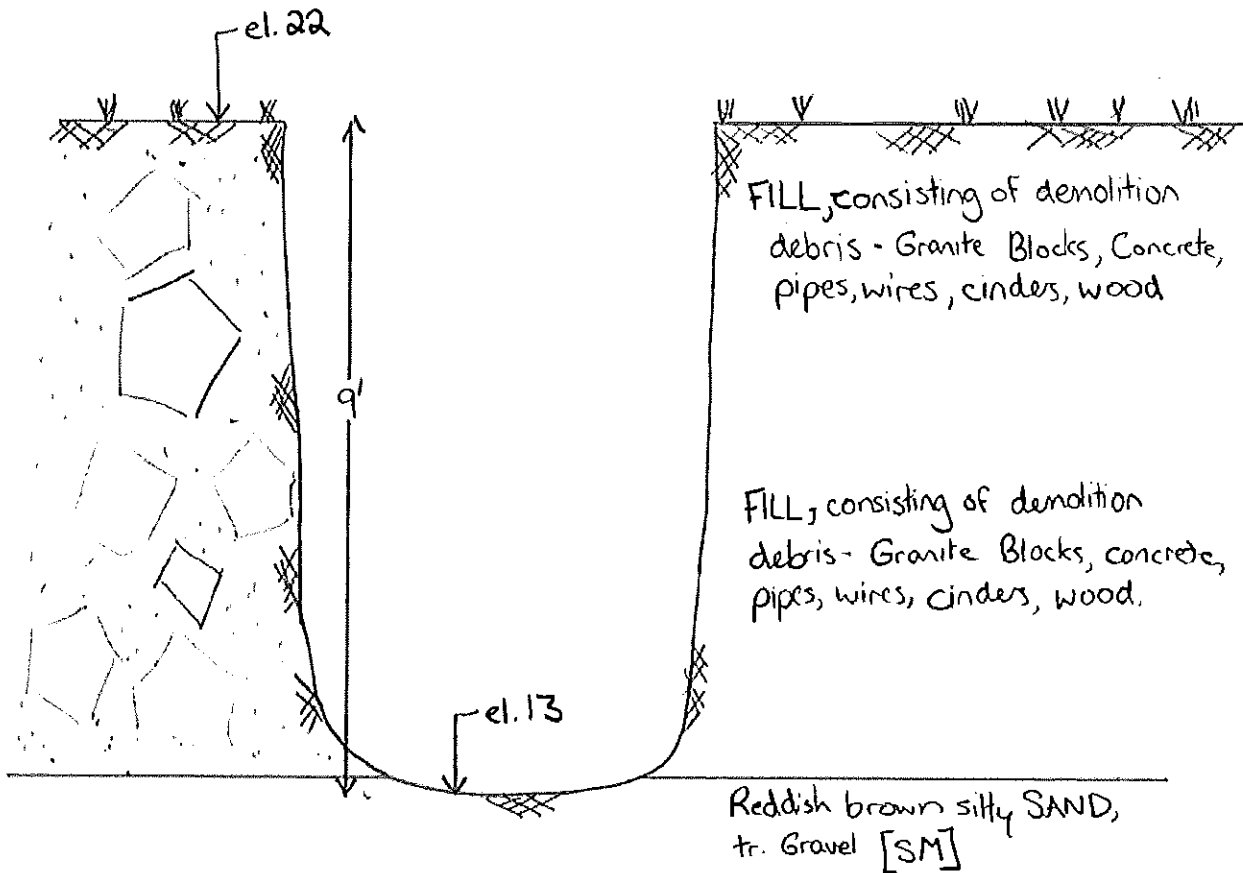 el. 22
FILL, consisting of demolition
debris - Granite Blocks, Concrete,
pipes, wires, cinders, wood
9'
FILL, consisting of demolition
debris - Granite Blocks, concrete,
pipes, wires, cinders, wood.
el. 13
Reddish brown silty SAND,
tr. Gravel [SM]